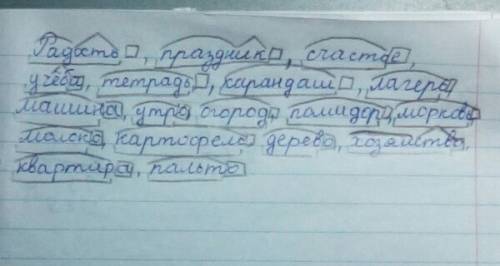 Радость, праздник, счастье,
учёба, тетрадь, карандаш, лагерь,
машина, утро, огород, помидор, морковь,
молоко, картофель, дерево, хозяйство,
квартира, пальто